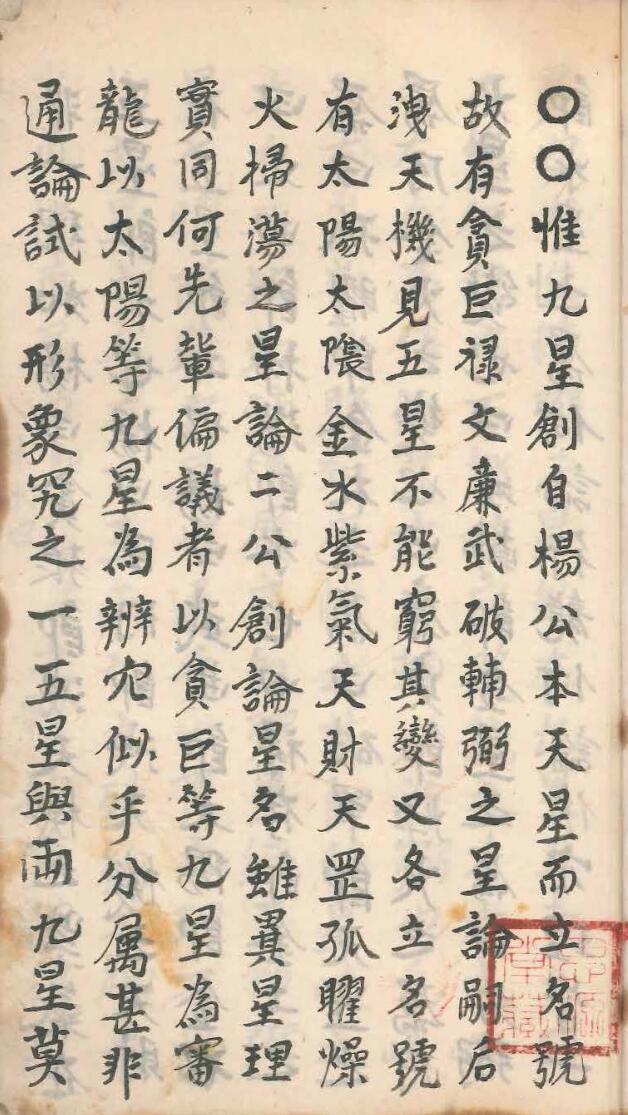 〇〇惟九星創自楊公本天星而立名號
故有貪巨祿文廉武破輔弼之星論嗣后
洩天機見五星不能窮其變又各立名號
有太陽太陰金水紫氣天財天罡孤曜燥
火掃蕩之星論二公創論星名雖異星理
實同何先輩偏議者以貪巨等九星為審
龍以太陽等九星為辨穴似乎分属甚非
通論試以形象究之一五星與兩九星莫